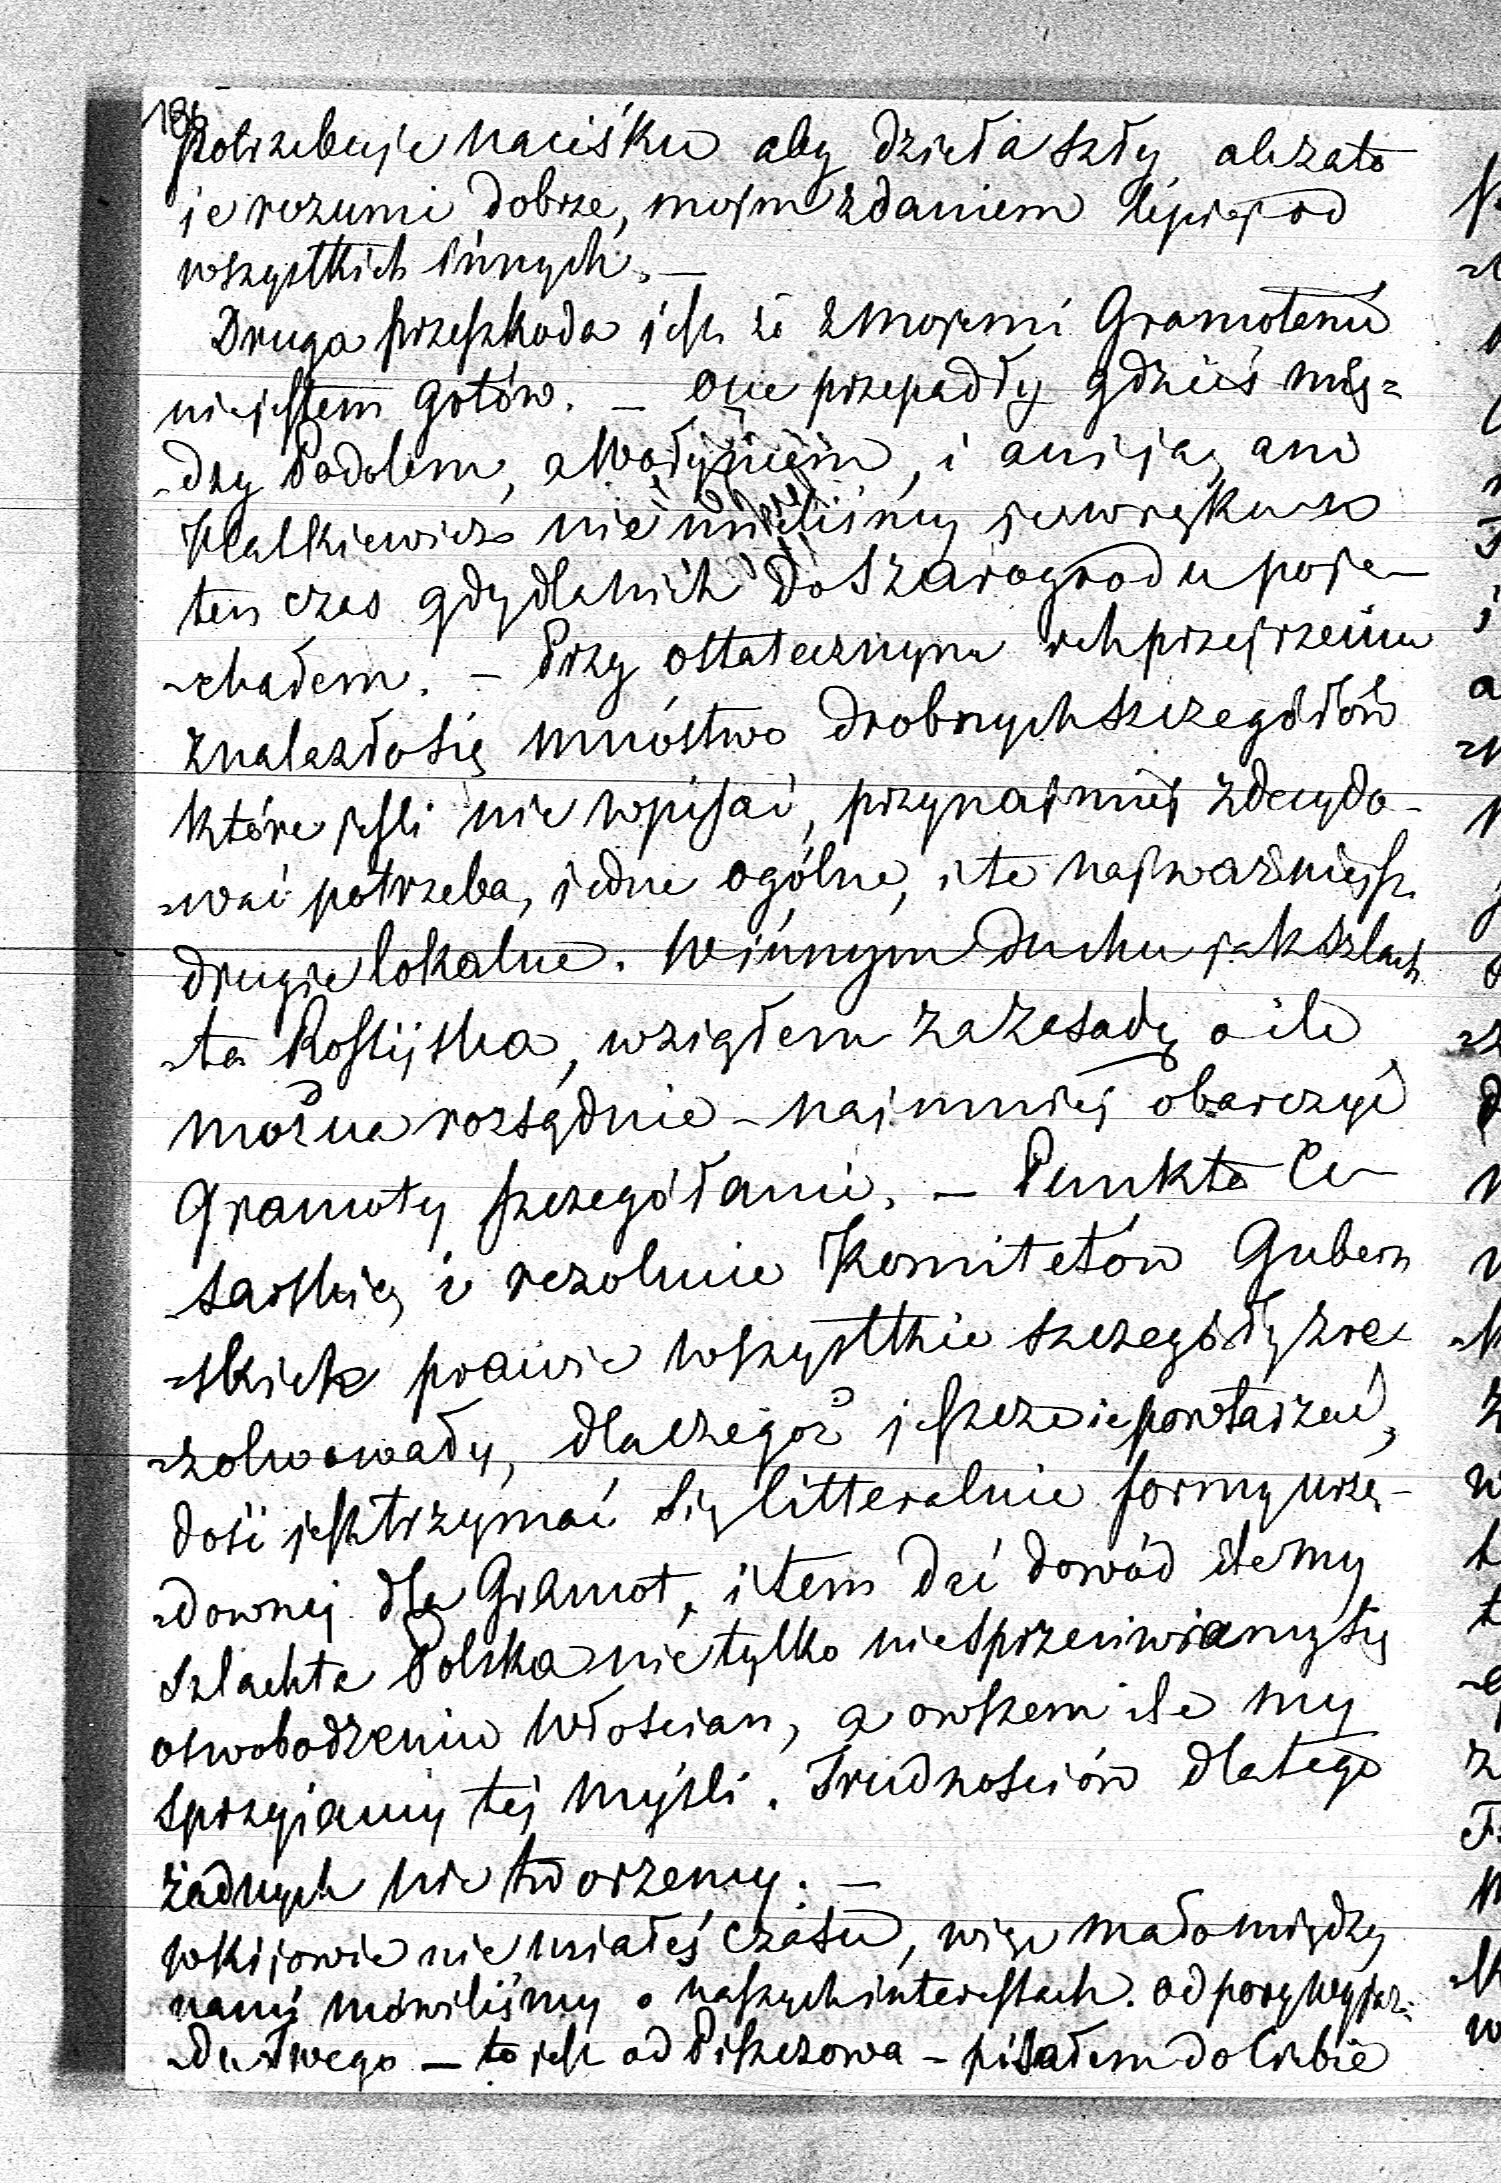 136
potrzebuje nacisku aby dzieła szły, ale zato
je rozumi dobrze, mojm zdaniem lepiej od
wszystkich innych. —
Druga przeszkoda jest że z mojemi Gramotami
nie jestem gotów. — one przepadły gdzieś mię=
-dzy Podolem, a Wołyniem, i ani ja, ani
nie mieliśmy je w ręku
ten czas gdy dla nich do Szarogrodu poje—
-chałem. — Przy ostatecznym ich przejrzeniu
znalazło się mnóstwo drobnych szczegółów
które jeśli nie wpisać, przynajmniej zdecydo-
-wać potrzeba, jedne ogólne, i te najważniejsz.
drugie lokalne. W innym duchu jak szlach
-ta Rossijska, wziąłem za zasadę o ile
można rozsądnie - najmniej obarczyć
Gramoty szczegółami. — Punkta Ce—
-sarskie, i rezolucie Komitetów Gubern
-skich prawie wszystkie szczegóły zre-
-zolwowały, dlaczegoż jeszcze ie powtarzać,
dość jest trzymać się litteralnie formy urzę-
-downej dla Gramot, i tem dać dowód ile my
szlachta Polska nie tylko nie sprzeciwiamy się
oswobodzeniu Włościan, a owszem ile my
sprzyjamy tej myśli. Trudnościów dlatego
żadnych nie tworzemy. —
w Kijowie nie miałeś czasu, więc mało między
nami mówiliśmy o naszych interessach. od pory wyjaz-
-du Twego — to jest od Piszczowa - pisałem do Ciebie